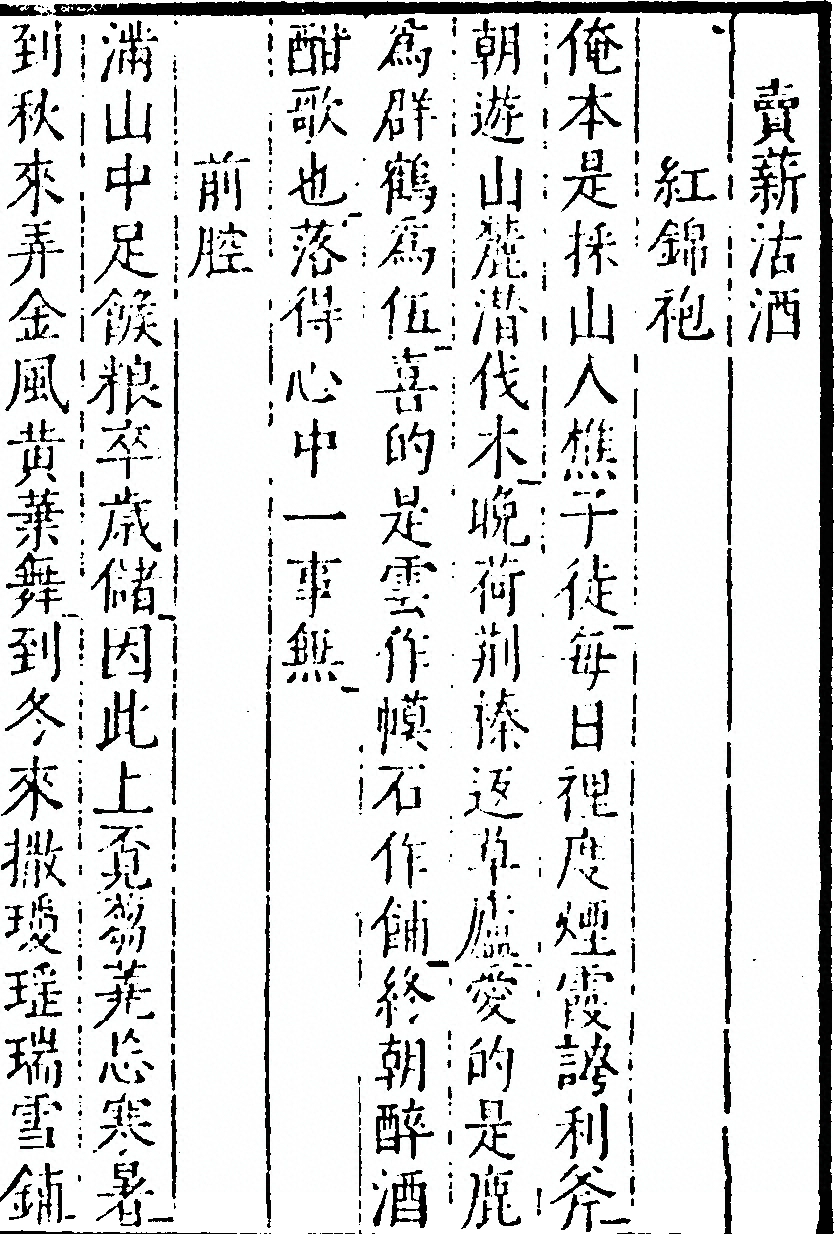 賣薪沽酒
紅錦袍
俺本是採山人樵子徒每日裡度煙霞誇利斧
朝遊山麓潛伐木晚荷荊榛返草廬愛的是鹿
爲群鶴爲伍喜的是雲作幙石作鋪終朝醉酒
酣歌也落得心中一事無
前腔
滿山中足餱粮卒歳儲因此上覓芻荛忘寒暑
到秋來弄金風黄葉舞到冬來撒瓊瑶瑞雪鋪